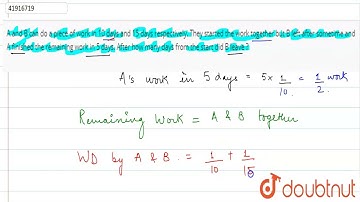 41916719
A and B can do a piece of work in 10 days and 15 days respectively. They started the work together but B left after sometime and
A finished the remaining work in 5 days. After how many days from the start did B leave?
A's work in 5 days = 5 x 1/10 = 1/2 work
Remaining Work = A & B together
WD by A & B = 1/10 + 1/15
doubtnut